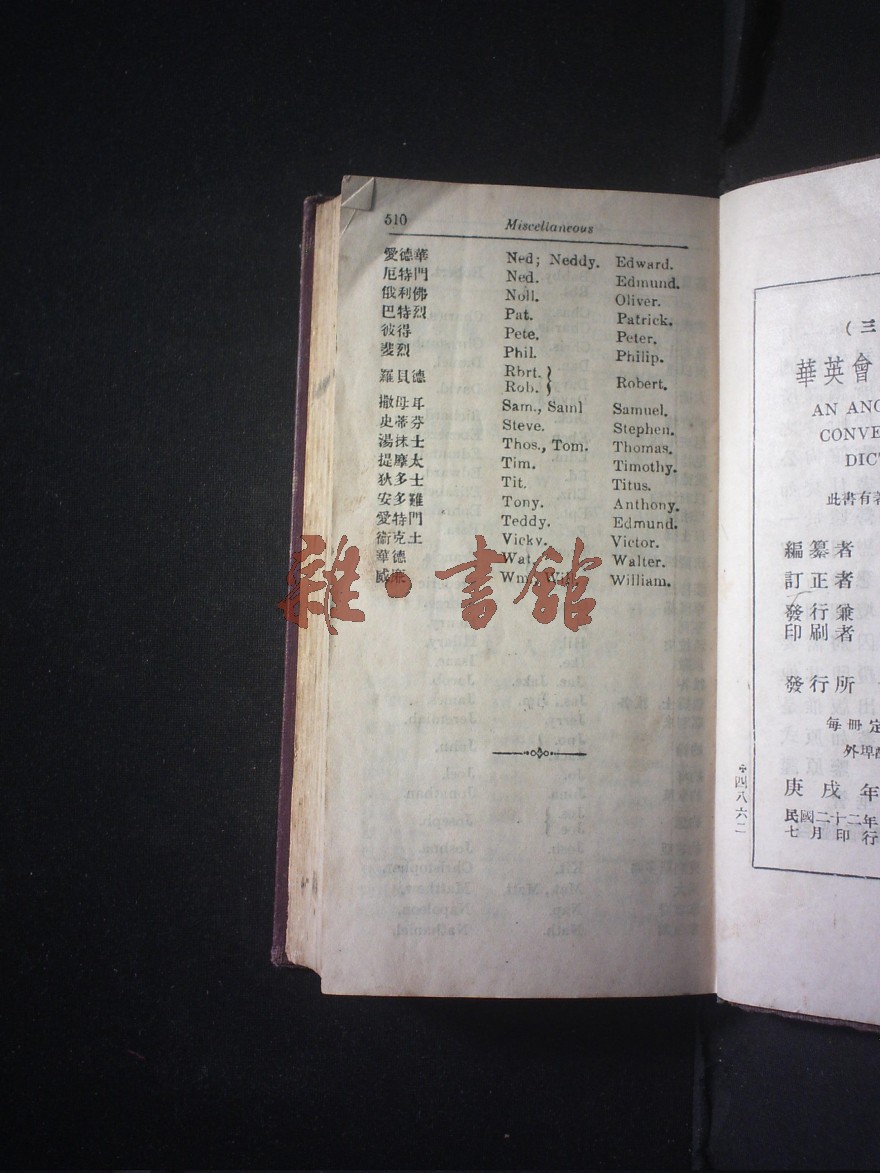 510 Miscellaneous
愛德華 Ned; Neddy. Edward.
厄特門 Ned. Edmund.
俄利佛 Noll. Oliver.
巴特烈 Pat. Patrick.
彼得 Pete. Peter.
斐烈 Phil. Philip.
羅貝德 Rbrt. Rob. } Robert.
撒母耳 Sam., Saml Samuel.
史蒂芬 Steve. Stephen.
湯抹士 Thos., Tom. Thomas.
提摩太 Tim. Timothy.
狄多士 Tit. Titus.
安多難 Tony. Anthony.
愛特門 Teddy. Edmund.
衞克土 Vicky. Victor.
華德 Wat. Walter.
威廉 Wm., Will. William.
雜·書館
(三
華英會
AN ANG
CONVE
DICT
此書有著
編纂者
訂正者
發行兼
印刷者
發行所
每冊定
外埠酌
庚戌年
民國二十二年
七月印行
四八六二